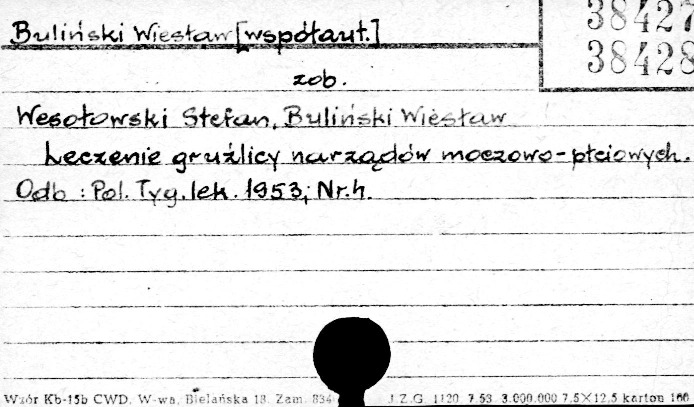 Buliński Wiesław [współaut.]
38427
38428
zob.
Wesołowski Stefan, Buliński Wiesław
Leczenie gruźlicy narządów moczowo-płciowych.
Odb : Pol. Tyg. lek. 1953, Nr. 4.
Wzór Kb-15b CWD. W-wa, Bielańska 18. Zam. 834 J.Z.G. 1120 7.53. 3.000.000 7,5×12,5 karton 160